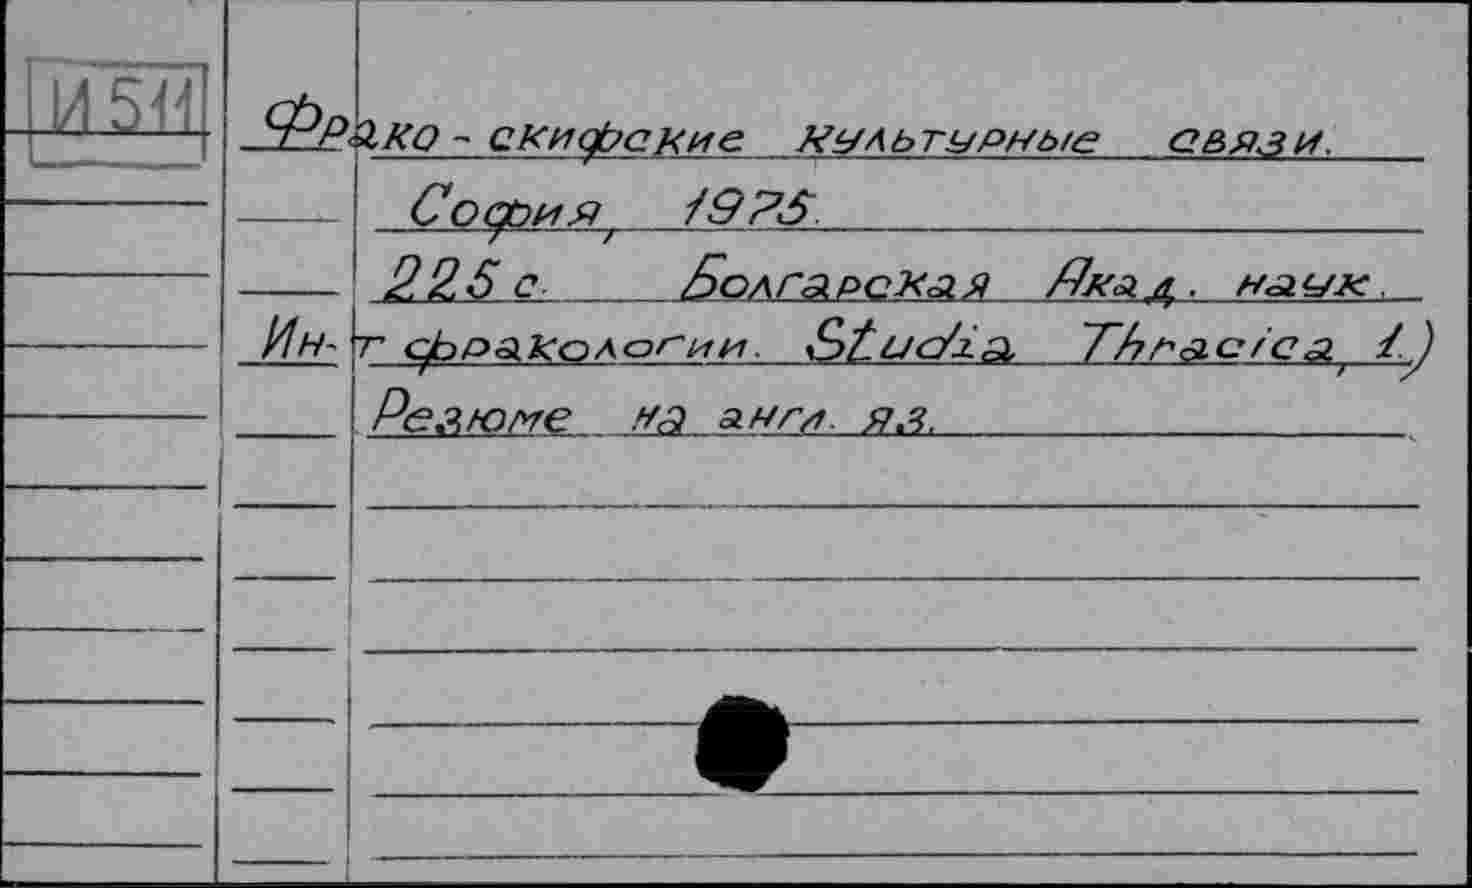 И 511
Фрако - скифские культурные связи.
София, 1975.
225 с. Болгарская Акад. наук.
Ин-т фракологии. Studia Thracica, 1.)
Резюме на англ. яз.